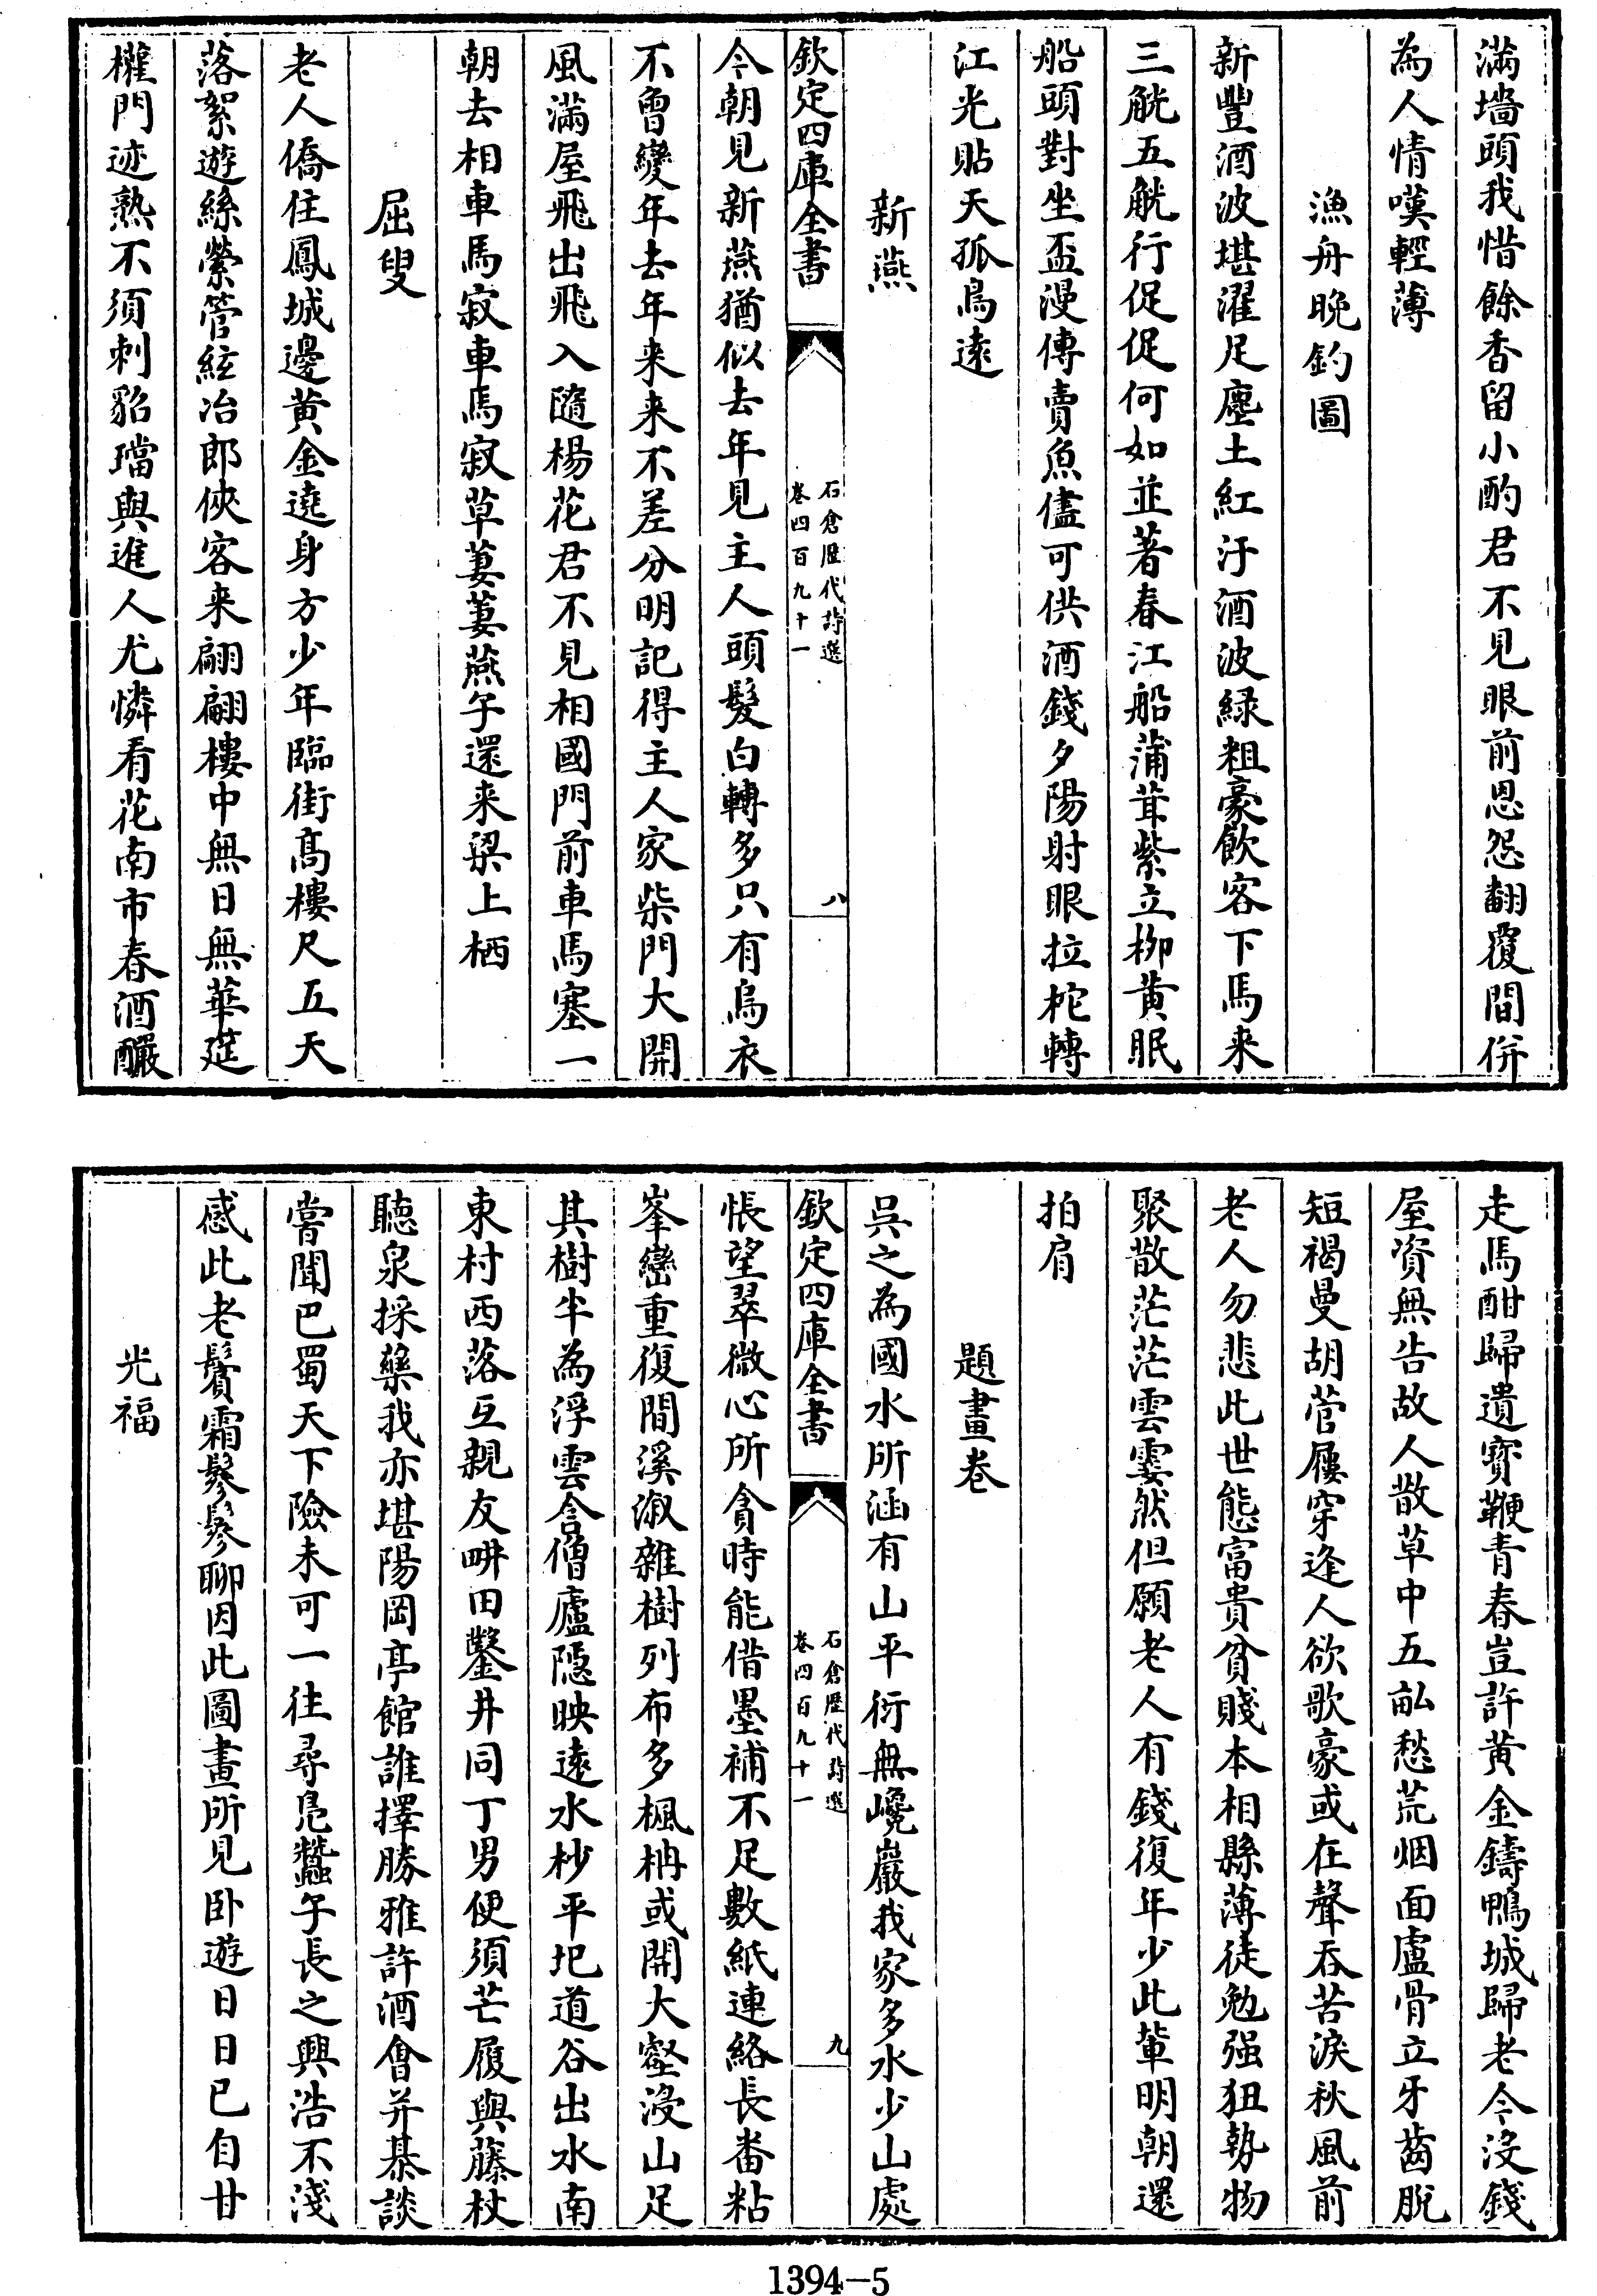 滿墻頭我惜餘香留小酌君不見眼前恩怨翻覆間併
為人情嘆輕薄
漁舟晚釣圖
新豐酒波堪濯足塵土紅汙酒波緑粗豪飲客下馬来
三觥五觥行促促何如並著春江船蒲茸紫立栁黄眠
船頭對坐盃漫傳賣魚儘可供酒錢夕陽射眼拉柁轉
江光貼天孤鳥逺
新燕
欽定四庫全書
石倉歴代詩選
卷四百九十一
八
今朝見新燕猶似去年見主人頭髮白轉多只有烏衣
不曾變年去年来来不差分明記得主人家柴門大開
風滿屋飛出飛入隨楊花君不見相國門前車馬塞一
朝去相車馬寂車馬寂草萋萋燕子還来梁上栖
屈叟
老人僑住鳳城邊黄金遶身方少年臨街髙樓尺五天
落絮遊絲縈管絃冶郎俠客来翩翩樓中無日無華筵
權門迹熟不須刺貂璫與進人尤憐看花南市春酒釅
走馬酣歸遺寳鞭青春豈許黄金鑄鴨城歸老今沒錢
屋資無告故人散草中五畝愁荒烟面盧骨立牙齒脫
短褐曼胡菅屨穿逢人欲歌豪或在聲吞苦淚秋風前
老人勿悲此世態富貴貧賤本相縣薄徒勉强狃勢物
聚散茫茫雲霎然但願老人有錢復年少此輩明朝還
拍肩
題畫卷
吳之為國水所涵有山平衍無巉巖我家多水少山處
欽定四庫全書
石倉歴代詩選
卷四百九十一
九
悵望翠微心所貪時能借墨補不足數紙連絡長畨粘
峯巒重復間溪漵雜樹列布多楓柟或開大壑浸山足
其樹半為浮雲含僧廬隠映逺水杪平圯道谷出水南
東村西落互親友畊田鑿井同丁男便須芒履與藤杖
聽泉採藥我亦堪陽岡亭館誰擇勝雅許酒㑹并棊談
嘗聞巴蜀天下險未可一往尋鳬蠶子長之興浩不淺
感此老鬢霜鬖鬖聊因此圖畫所見卧遊日日已自甘
光福
1394-5